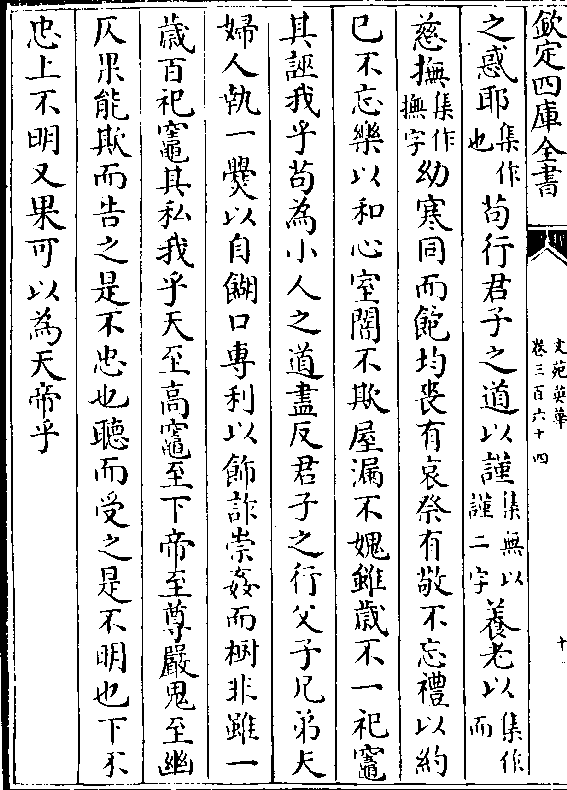 欽定四庫全書
文苑英華
卷三百六十四
十
之惑耶集作也茍行君子之道以謹集無以謹二字養老以集作而
慈撫集作撫字幼寒同而飽均喪有哀祭有敬不忘禮以約
己不忘樂以和心室闇不欺屋漏不媿雖歲不一祀竈
其誣我乎茍為小人之道盡反君子之行父子兄弟夫
婦人執一爨以自餬口專利以飾詐崇姦而樹非雖一
歲百祀竈其私我乎天至高竈至下帝至尊嚴鬼至幽
仄果能欺而告之是不忠也聽而受之是不明也下不
忠上不明又果可以為天帝乎